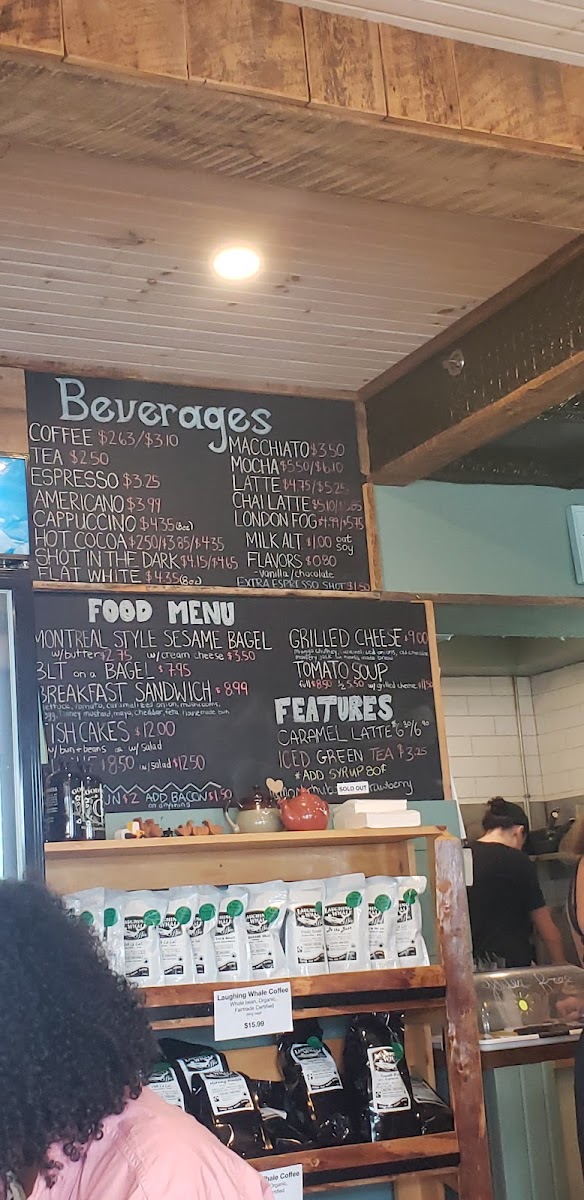 Beverages
COFFEE $2.63/$3.10
TEA $2.50
ESPRESSO $3.25
AMERICANO $3.99
CAPPUCCINO $4.35 (8oz)
HOT COCOA $2.50/$3.85/$4.35
SHOT IN THE DARK $4.15/$4.65
FLAT WHITE $4.35 (8oz)
MACCHIATO $3.50
MOCHA $5.50/$6.10
LATTE $4.75/$5.25
CHAI LATTE $5.10/
LONDON FOG $4.99/$5.75
MILK ALT $1.00 oat soy
FLAVORS $0.80
-vanilla/chocolate
EXTRA ESPRESSO SHOT $1.50
FOOD MENU
MONTREAL STYLE SESAME BAGEL
w/butter $2.75 w/cream cheese $3.50
BLT on a BAGEL $7.95
BREAKFAST SANDWICH $8.99
lettuce, tomato, caramelized onion, mushrooms,
egg, honey mustard, mayo, cheddar, feta, homemade bun
FISHCAKES $12.00
w/bun + beans or w/ salad
$8.50 w/salad $12.50
$2 ADD BACON $1.50
on anything
GRILLED CHEESE $9.00
TOMATO SOUP
full $8.50 ½ 5.50 w/ grilled cheese
FEATURES
CARAMEL LATTE
ICED GREEN TEA $3.25
*ADD SYRUP 80¢
SOLD OUT
Laughing Whale Coffee
Whole bean, Organic,
Fairtrade Certified
$15.99
Whale Coffee
Organic,